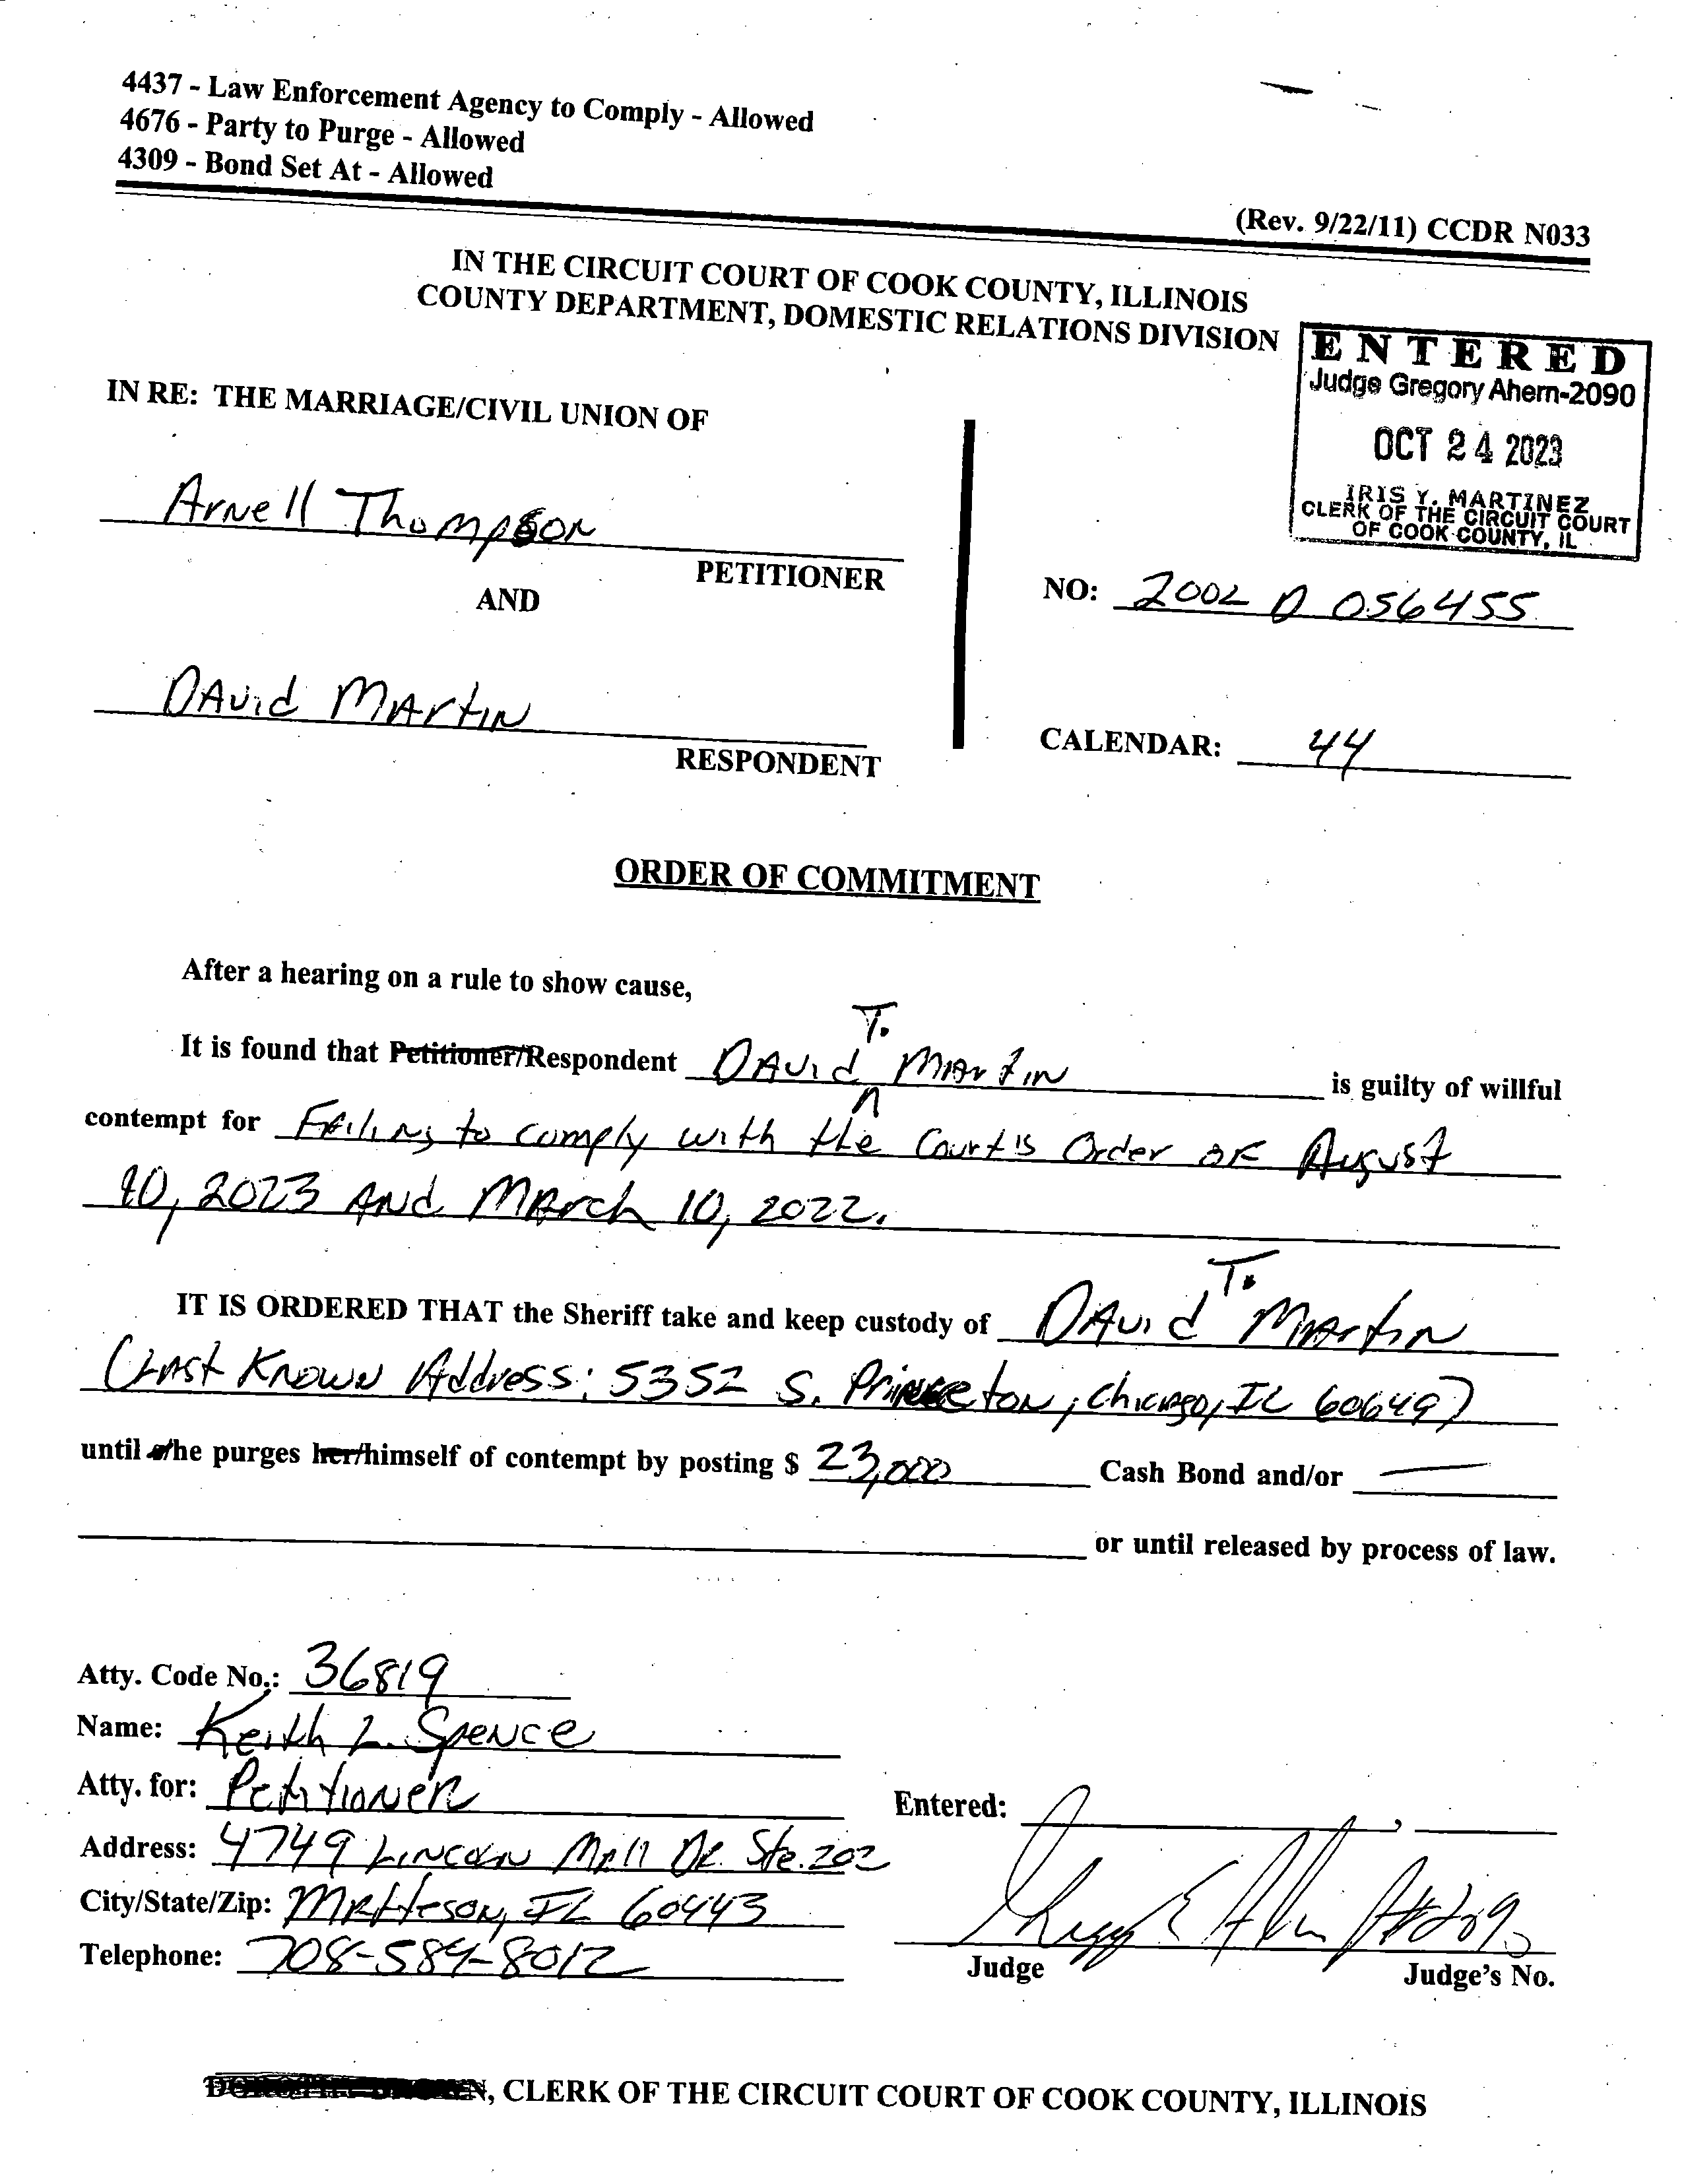 4437 - Law Enforcement Agency to Comply - Allowed
4676 - Party to Purge - Allowed
4309 - Bond Set At - Allowed
(Rev. 9/22/11) CCDR N033
IN THE CIRCUIT COURT OF COOK COUNTY, ILLINOIS
COUNTY DEPARTMENT, DOMESTIC RELATIONS DIVISION
ENTERED
Judge Gregory Ahern-2090
OCT 24 2023
IRIS Y. MARTINEZ
CLERK OF THE CIRCUIT COURT
OF COOK COUNTY, IL
IN RE: THE MARRIAGE/CIVIL UNION OF
Arnell Thompson
PETITIONER
AND
NO: 2002 D 056455
David Martin
RESPONDENT
CALENDAR: 44
ORDER OF COMMITMENT
After a hearing on a rule to show cause,
It is found that Petitioner/Respondent David T. Martin is guilty of willful
contempt for Failing to comply with the Court's Order of August
10, 2023 and March 10, 2022.
IT IS ORDERED THAT the Sheriff take and keep custody of David T. Martin
(Last Known Address: 5352 S. Princeton, Chicago, IL 60649)
until s/he purges her/himself of contempt by posting $ 23,000 Cash Bond and/or
or until released by process of law.
Atty. Code No.: 36819
Name: Keith L. Spence
Atty. for: Petitioner
Entered:
Address: 4749 Lincoln Mall Dr. Ste. 202
City/State/Zip: Matteson, IL 60443
Telephone: 708-584-8012
Judge Judge's No.
CLERK OF THE CIRCUIT COURT OF COOK COUNTY, ILLINOIS